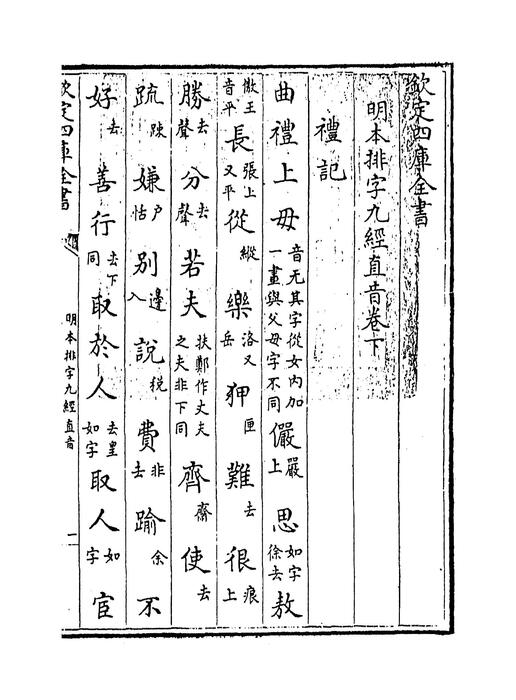 欽定四庫全書
明本排字九經直音卷下
禮記
曲禮上毋音无其字從女內加一畫與父母字不同儼嚴上思如字徐去敖
傲王音平長張上又平從縱樂洛又岳狎匣難去很痕上
勝去聲分去聲若夫扶鄭作丈夫之夫非下同齊齋使去
疏踈嫌户怗别邊入說税費非去踰余不
好去善行去下同取於人去皇如字取人如字宦
欽定四庫全書
明本排字九經直音
一